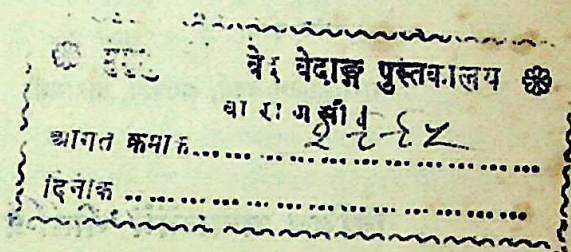 वेद वेदाङ्ग पुस्तकालय
वाराणसी।
आगत क्रमांक........................................
दिनांक ................................................